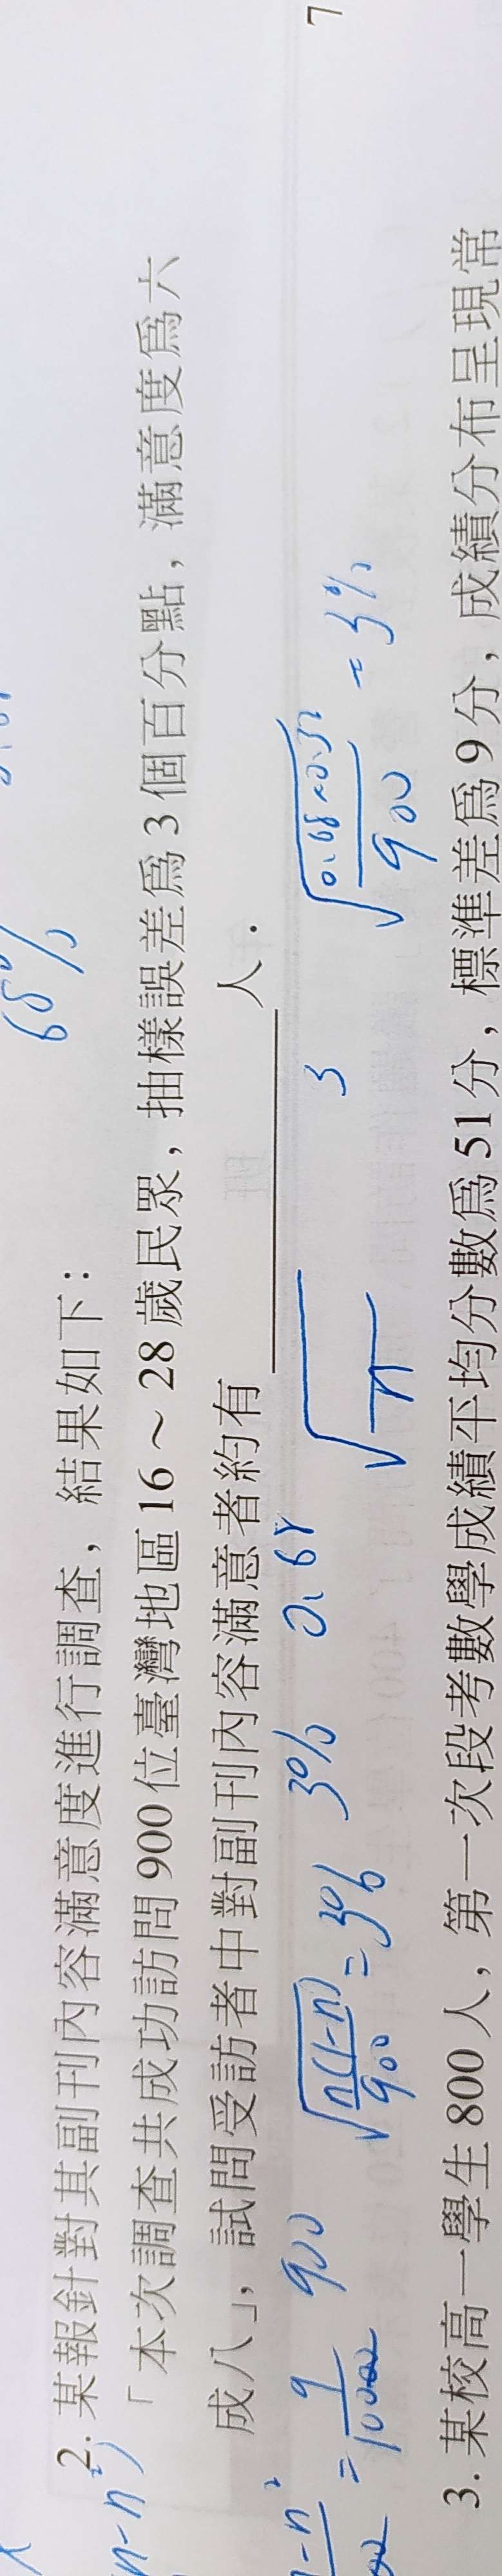 68%
2. 某報針對其副刊內容滿意度進行調查，結果如下：
「本次調查共成功訪問 900 位臺灣地區 16 ~ 28 歲民眾，抽樣誤差爲 3 個百分點，滿意度爲六
成八」，試問受訪者中對副刊內容滿意者約有 人．
= 9/1000 900 √(n(1-n)/900) = 3% 3% 0.68 √ n 3 √(0.68×0.32/900) = 3%
3. 某校高一學生 800 人，第一次段考數學成績平均分數爲 51 分，標準差爲 9 分，成績分布呈現常
7